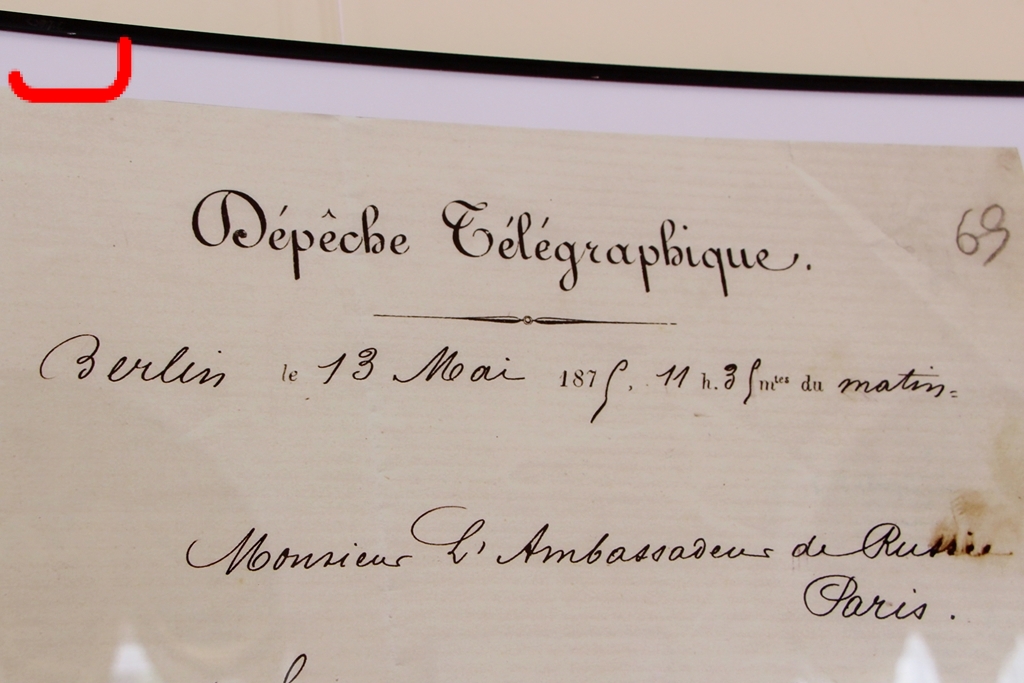 69
Dépêche Télégraphique.
Berlin le 13 Mai 1875, 11 h. 35 mtes du matin=
Monsieur L'Ambassadeur de Russie
Paris.